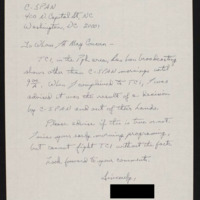 C-SPAN
400 N Capitol St, NC
Washington, DC 20001
To Whom It May Concern -
TCI, in the area, has been broadcasting
shows other than C-SPAN mornings until
9 When I complained to TCI, I was
advised it was the result of a decision
by C-SPAN and out of their hands.
Please advise if this is true must
I miss your early morning programming,
but cannot fight TCI without the facts.
Look forward to your comments.
Sincerely,